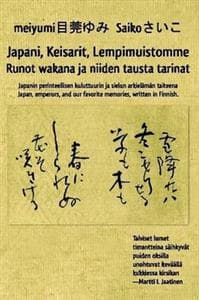 meiyumi目莞ゆみ Saikoさいこ
Japani, Keisarit, Lempimuistomme
Runot wakana ja niiden tausta tarinat
Japanin perinteellisen kuluttuurin ja sielun arkielämän taiteena
Japan, emperors, and our favorite memories, written in Finnish.
雪降れば
冬ごもりせる
草も木も
春に
しられぬ
花ぞ咲きける
Talviset lumet
timantteina säihkyvät
puiden oksilla
unohtuvat keväällä
kukkiessa kirsikan
—Martti I. Jaatinen